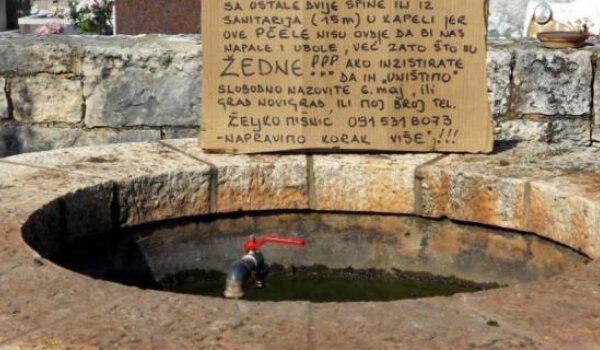 SA OSTALE DVIJE ŠPINE ILI IZ
SANITARIJA (15m) U KAPELI JER
OVE PČELE NISU OVDJE DA BI NAS
NAPALE I UBOLE, VEĆ ZATO ŠTO SU
ŽEDNE!!! AKO INZISTIRATE
DA IH „UNIŠTIMO"
SLOBODNO NAZOVITE 6. MAJ, ILI
GRAD NOVIGRAD, ILI MOJ BROJ TEL.
ŽELJKO MIŠNIĆ 091 531 8073
-NAPRAVIMO KORAK VIŠE"!!!